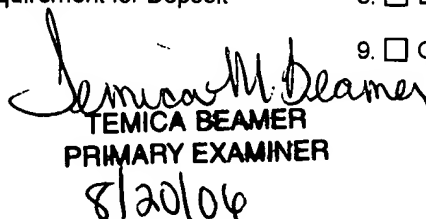 9. ☐
Temica M. Beamer
TEMICA BEAMER
PRIMARY EXAMINER
8/20/06